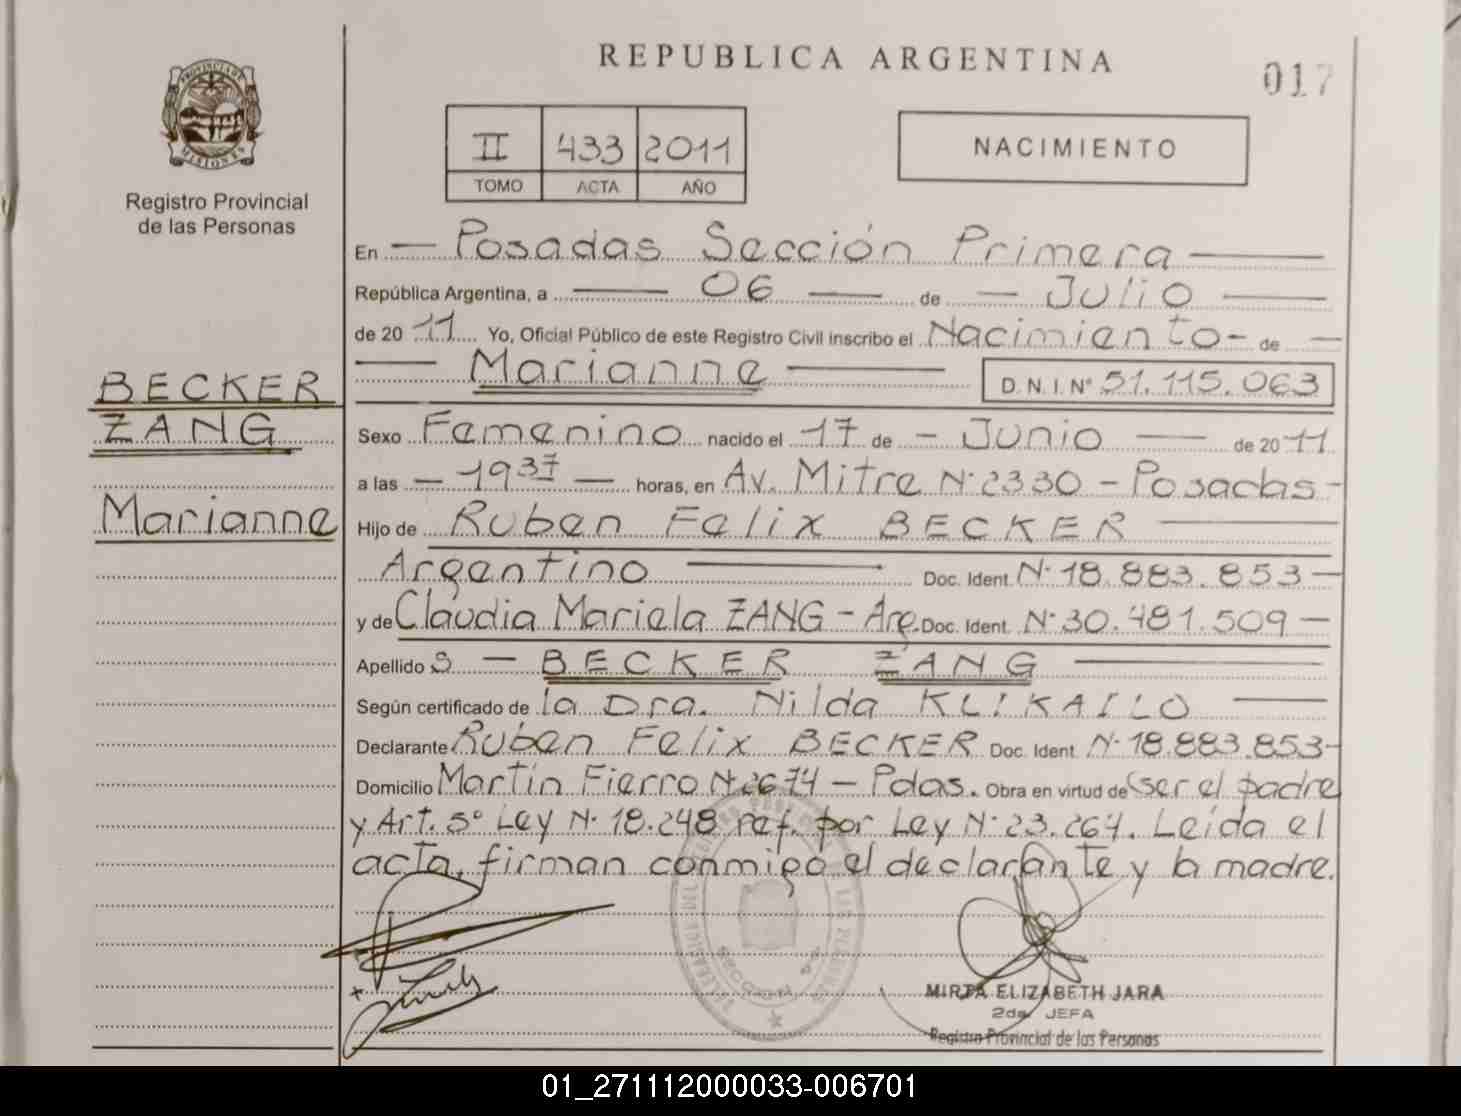 REPUBLICA ARGENTINA
017
PROVINCIA DE
MISIONES
Registro Provincial
de las Personas
II 433 2011
TOMO ACTA AÑO
NACIMIENTO
En — Posadas Sección Primera —
República Argentina, a — 06 — de — Julio —
de 2011 Yo, Oficial Público de este Registro Civil inscribo el Nacimiento- de —
— Marianne — D.N.I.Nº 51.115.063
BECKER
ZANG
Marianne
Sexo Femenino nacido el 17 de — Junio — de 2011
a las — 19 37 — horas, en Av. Mitre Nº 2330 - Posadas -
Hijo de Ruben Felix BECKER —
Argentino — Doc. Ident. Nº 18.883.853 —
y de Claudia Mariela ZANG - Arg. Doc. Ident. Nº 30.481.509 —
Apellido s — BECKER ZANG —
Según certificado de la Dra. Nilda KLIKAILO —
Declarante Rubén Felix BECKER Doc. Ident. Nº 18.883.853-
Domicilio Martín Fierro Nº 2674 - Pdas. Obra en virtud de ser el padre
y Art. 5º Ley Nº 18.248 ref. por Ley Nº 23.264. Leída el
acta, firman conmigo el declarante y la madre.
MIRTA ELIZABETH JARA
2da JEFA
Registro Provincial de las Personas
01_271112000033-006701